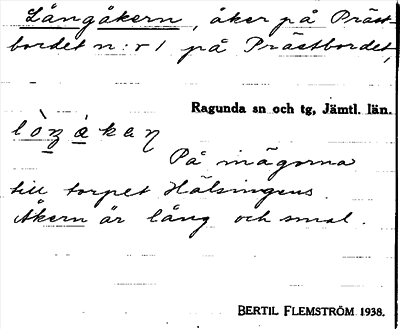 Långåkern, åker på Präst-
bordet n:r 1 på Prästbordet,
Ragunda sn och tg, Jämtl. län.
På inägorna
till torpet Hälsingens.
Åkern är lång och smal.
BERTIL FLEMSTRÖM 1938.